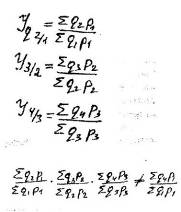 y q 2/1 = Σq2p1 / Σq1p1
y 3/2 = Σq3p2 / Σq2p2
y 4/3 = Σq4p3 / Σq3p3
Σq2p1 / Σq1p1 · Σq3p2 / Σq2p2 · Σq4p3 / Σq3p3 ≠ Σq4p1 / Σq1p1